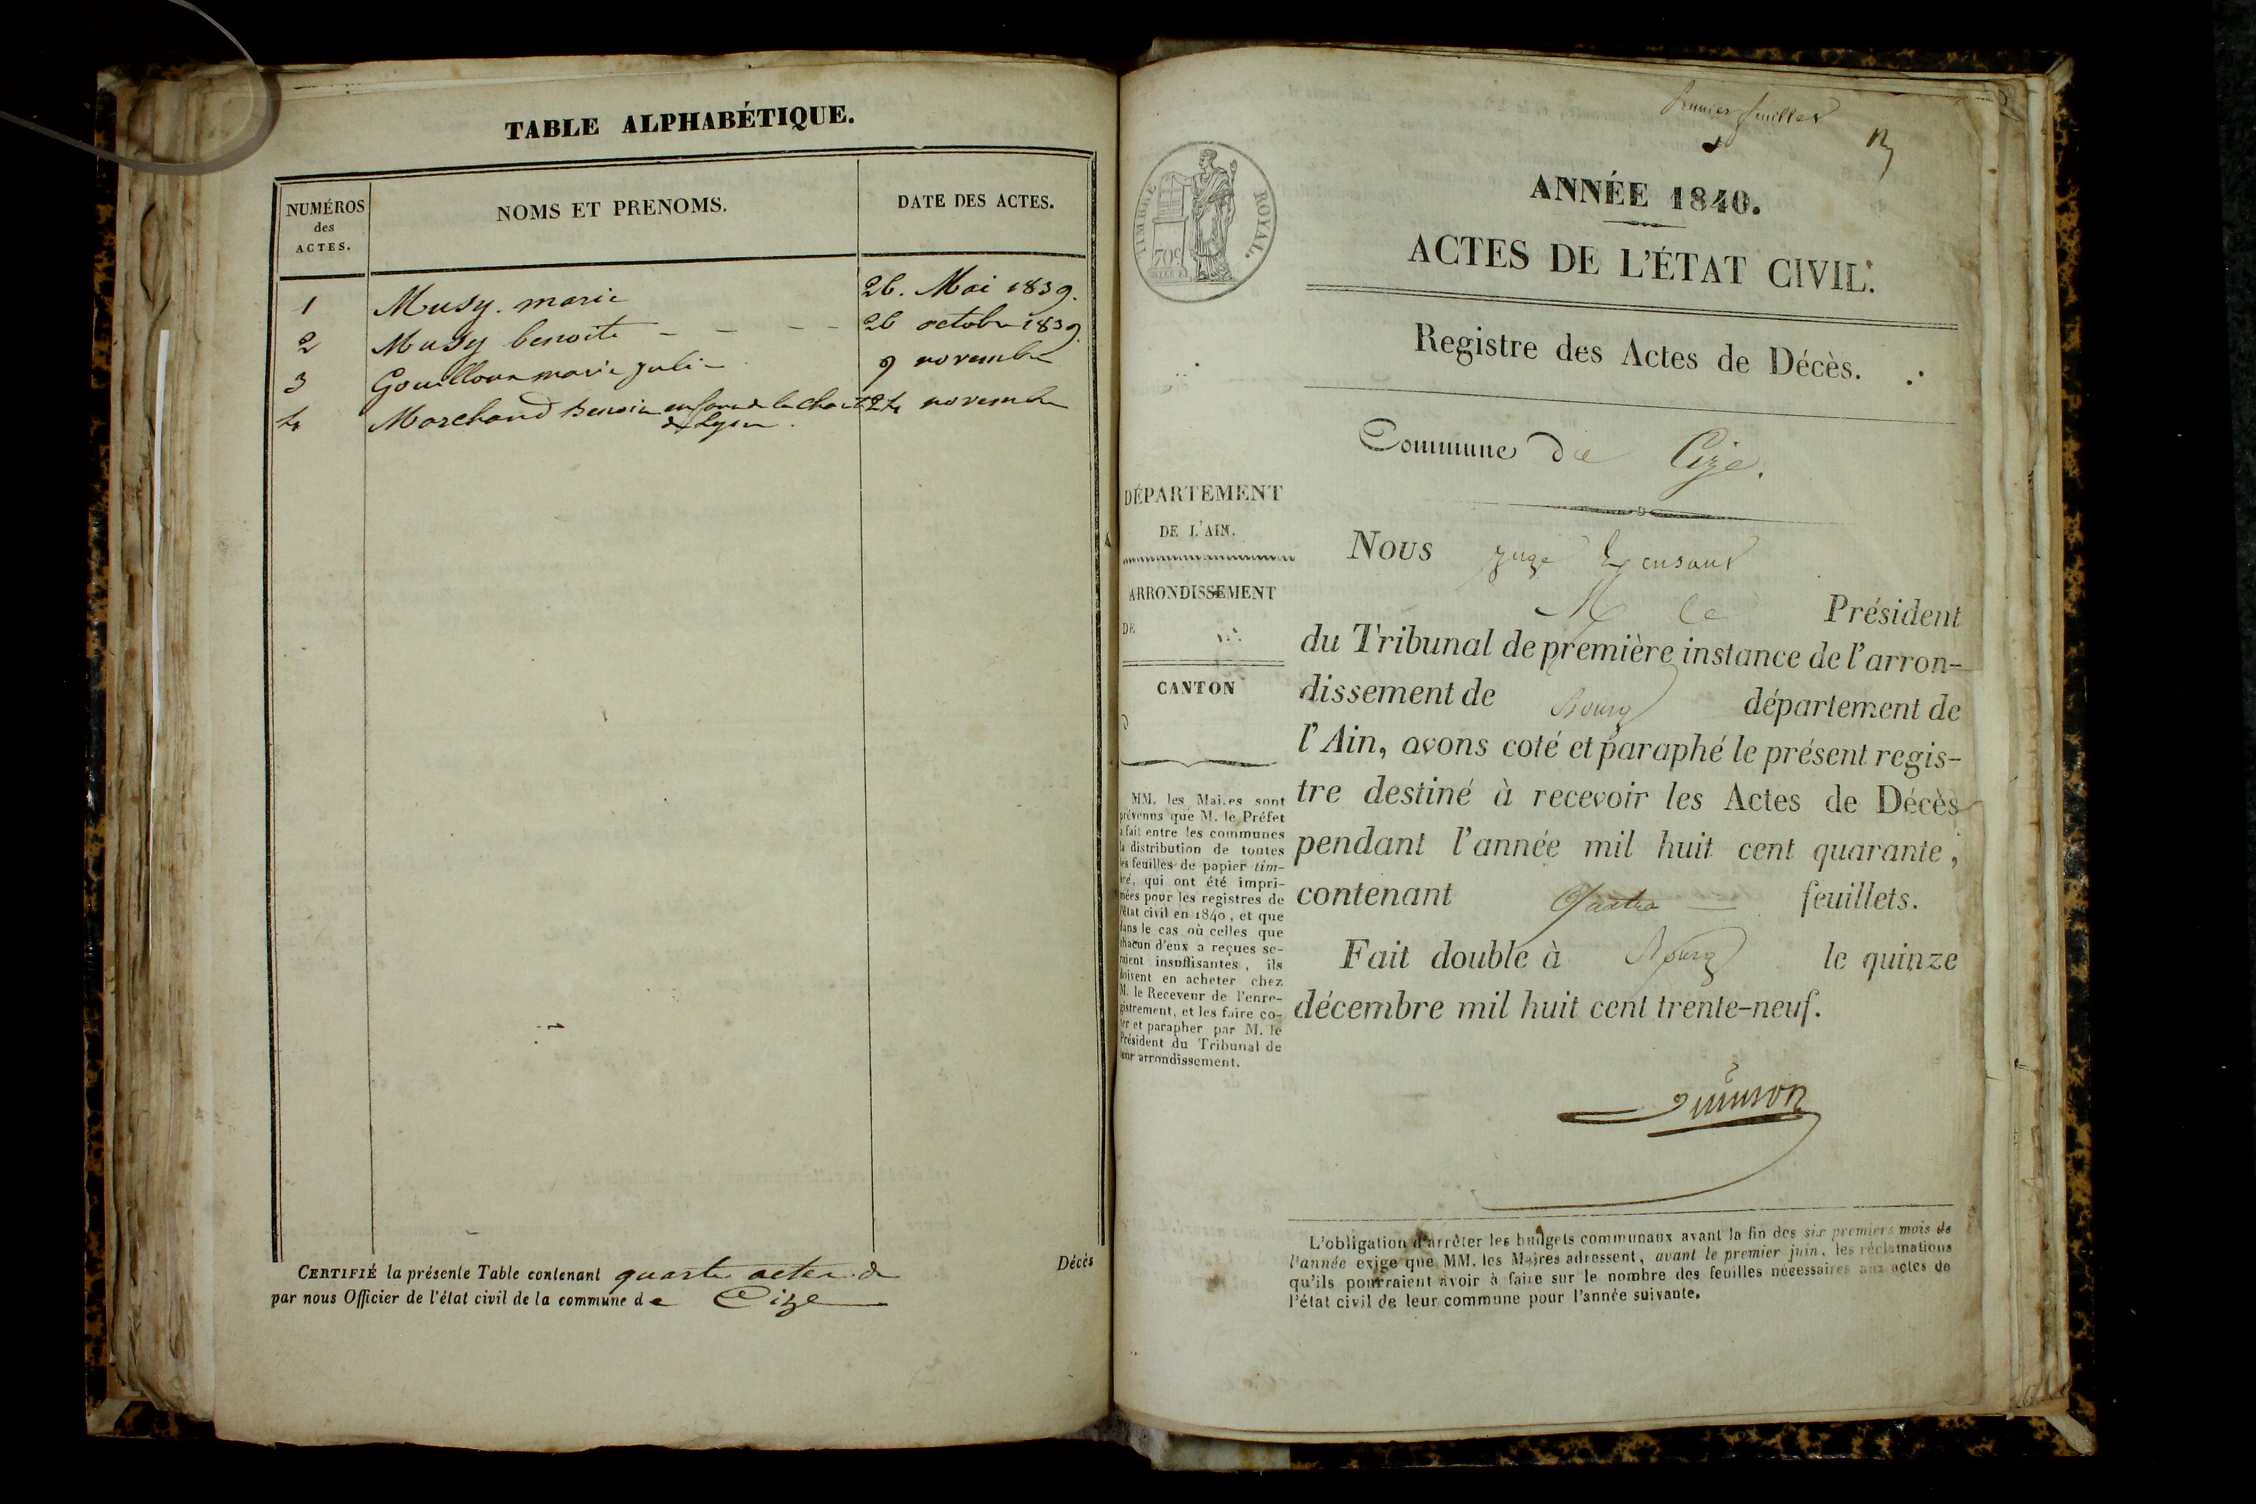 TABLE ALPHABÉTIQUE.
NUMÉROS
des
ACTES.
NOMS ET PRENOMS.
DATE DES ACTES.
1 Musy. marie 26. Mai 1839.
2 Musy benoite - - - - 26 octobre 1839.
3 Gouilloux marie julie 9 novembre
4 Marchand Benoit enfant de la charité 24 novembre
de Lyon.
CERTIFIÉ la présente Table contenant quatre actes de Décès
par nous Officier de l'état civil de la commune de Cize
Premier feuillet
TIMBRE ROYAL.
ANNÉE 1840.
ACTES DE L'ÉTAT CIVIL.
Registre des Actes de Décès.
Commune de Cize.
DÉPARTEMENT
DE L'AIN.
ARRONDISSEMENT
DE
CANTON
D
MM. les Maires sont
prévenus que M. le Préfet
a fait entre les communes
la distribution de toutes
les feuilles de papier tim-
bré, qui ont été impri-
mées pour les registres de
l'état civil en 1840, et que
dans le cas où celles que
chacun d'eux a reçues se-
raient insuffisantes, ils
doivent en acheter chez
M. le Receveur de l'enre-
gistrement, et les faire co-
ter et parapher par M. le
Président du Tribunal de
leur arrondissement.
Nous juge
M le Président
du Tribunal de première instance de l'arron-
dissement de Bourg département de
l'Ain, avons coté et paraphé le présent regis-
tre destiné à recevoir les Actes de Décès
pendant l'année mil huit cent quarante,
contenant quatre feuillets.
Fait double à Bourg le quinze
décembre mil huit cent trente-neuf.
L'obligation d'arrêter les budgets communaux avant la fin des six premiers mois de
l'année exige que MM. les Maires adressent, avant le premier juin, les réclamations
qu'ils pourraient avoir à faire sur le nombre des feuilles nécessaires aux actes de
l'état civil de leur commune pour l'année suivante.